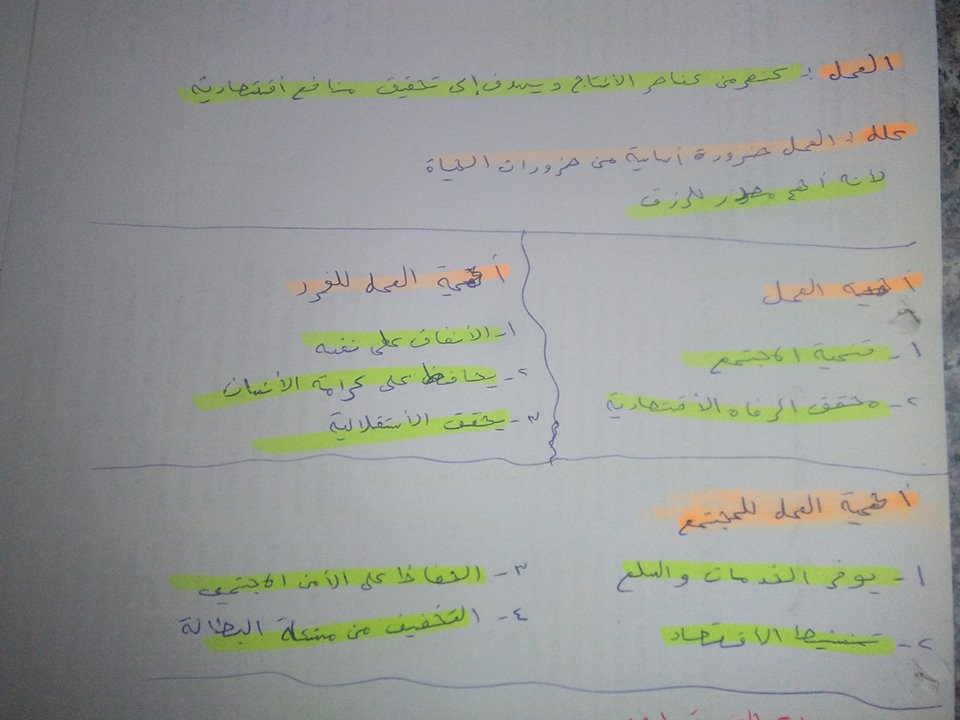 العمل : عنصر من عناصر الأنتاج ويهدف إلى تحقيق منافع أقتصادية
علل : العمل ضرورة أساسية من ضرورات الحياة
لأنه أهم مصدر للرزق
أهمية العمل
١- تنمية المجتمع
٢- محقق الرفاه الأقتصادية
أهمية العمل للفرد
١- الأنفاق على نفسه
٢- يحافظ على كرامة الأنسان
٣- يحقق الأستقلالية
أهمية العمل للمجتمع
١- يوفر الخدمات والسلع
٢- تنشيط الاقتصاد
٣- الحفاظ على الأمن الاجتماعي
٤- التخفيف من مشكلة البطالة